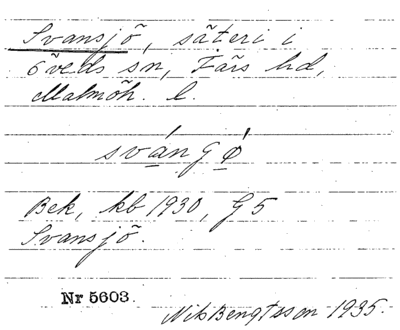 Svansjö, säteri i
Öveds sn, Färs hd,
Malmöh. l.
svángǿ
Bek, kb 1930, G5
Svansjö.
Nr 5603
Nils Bengtsson 1935.